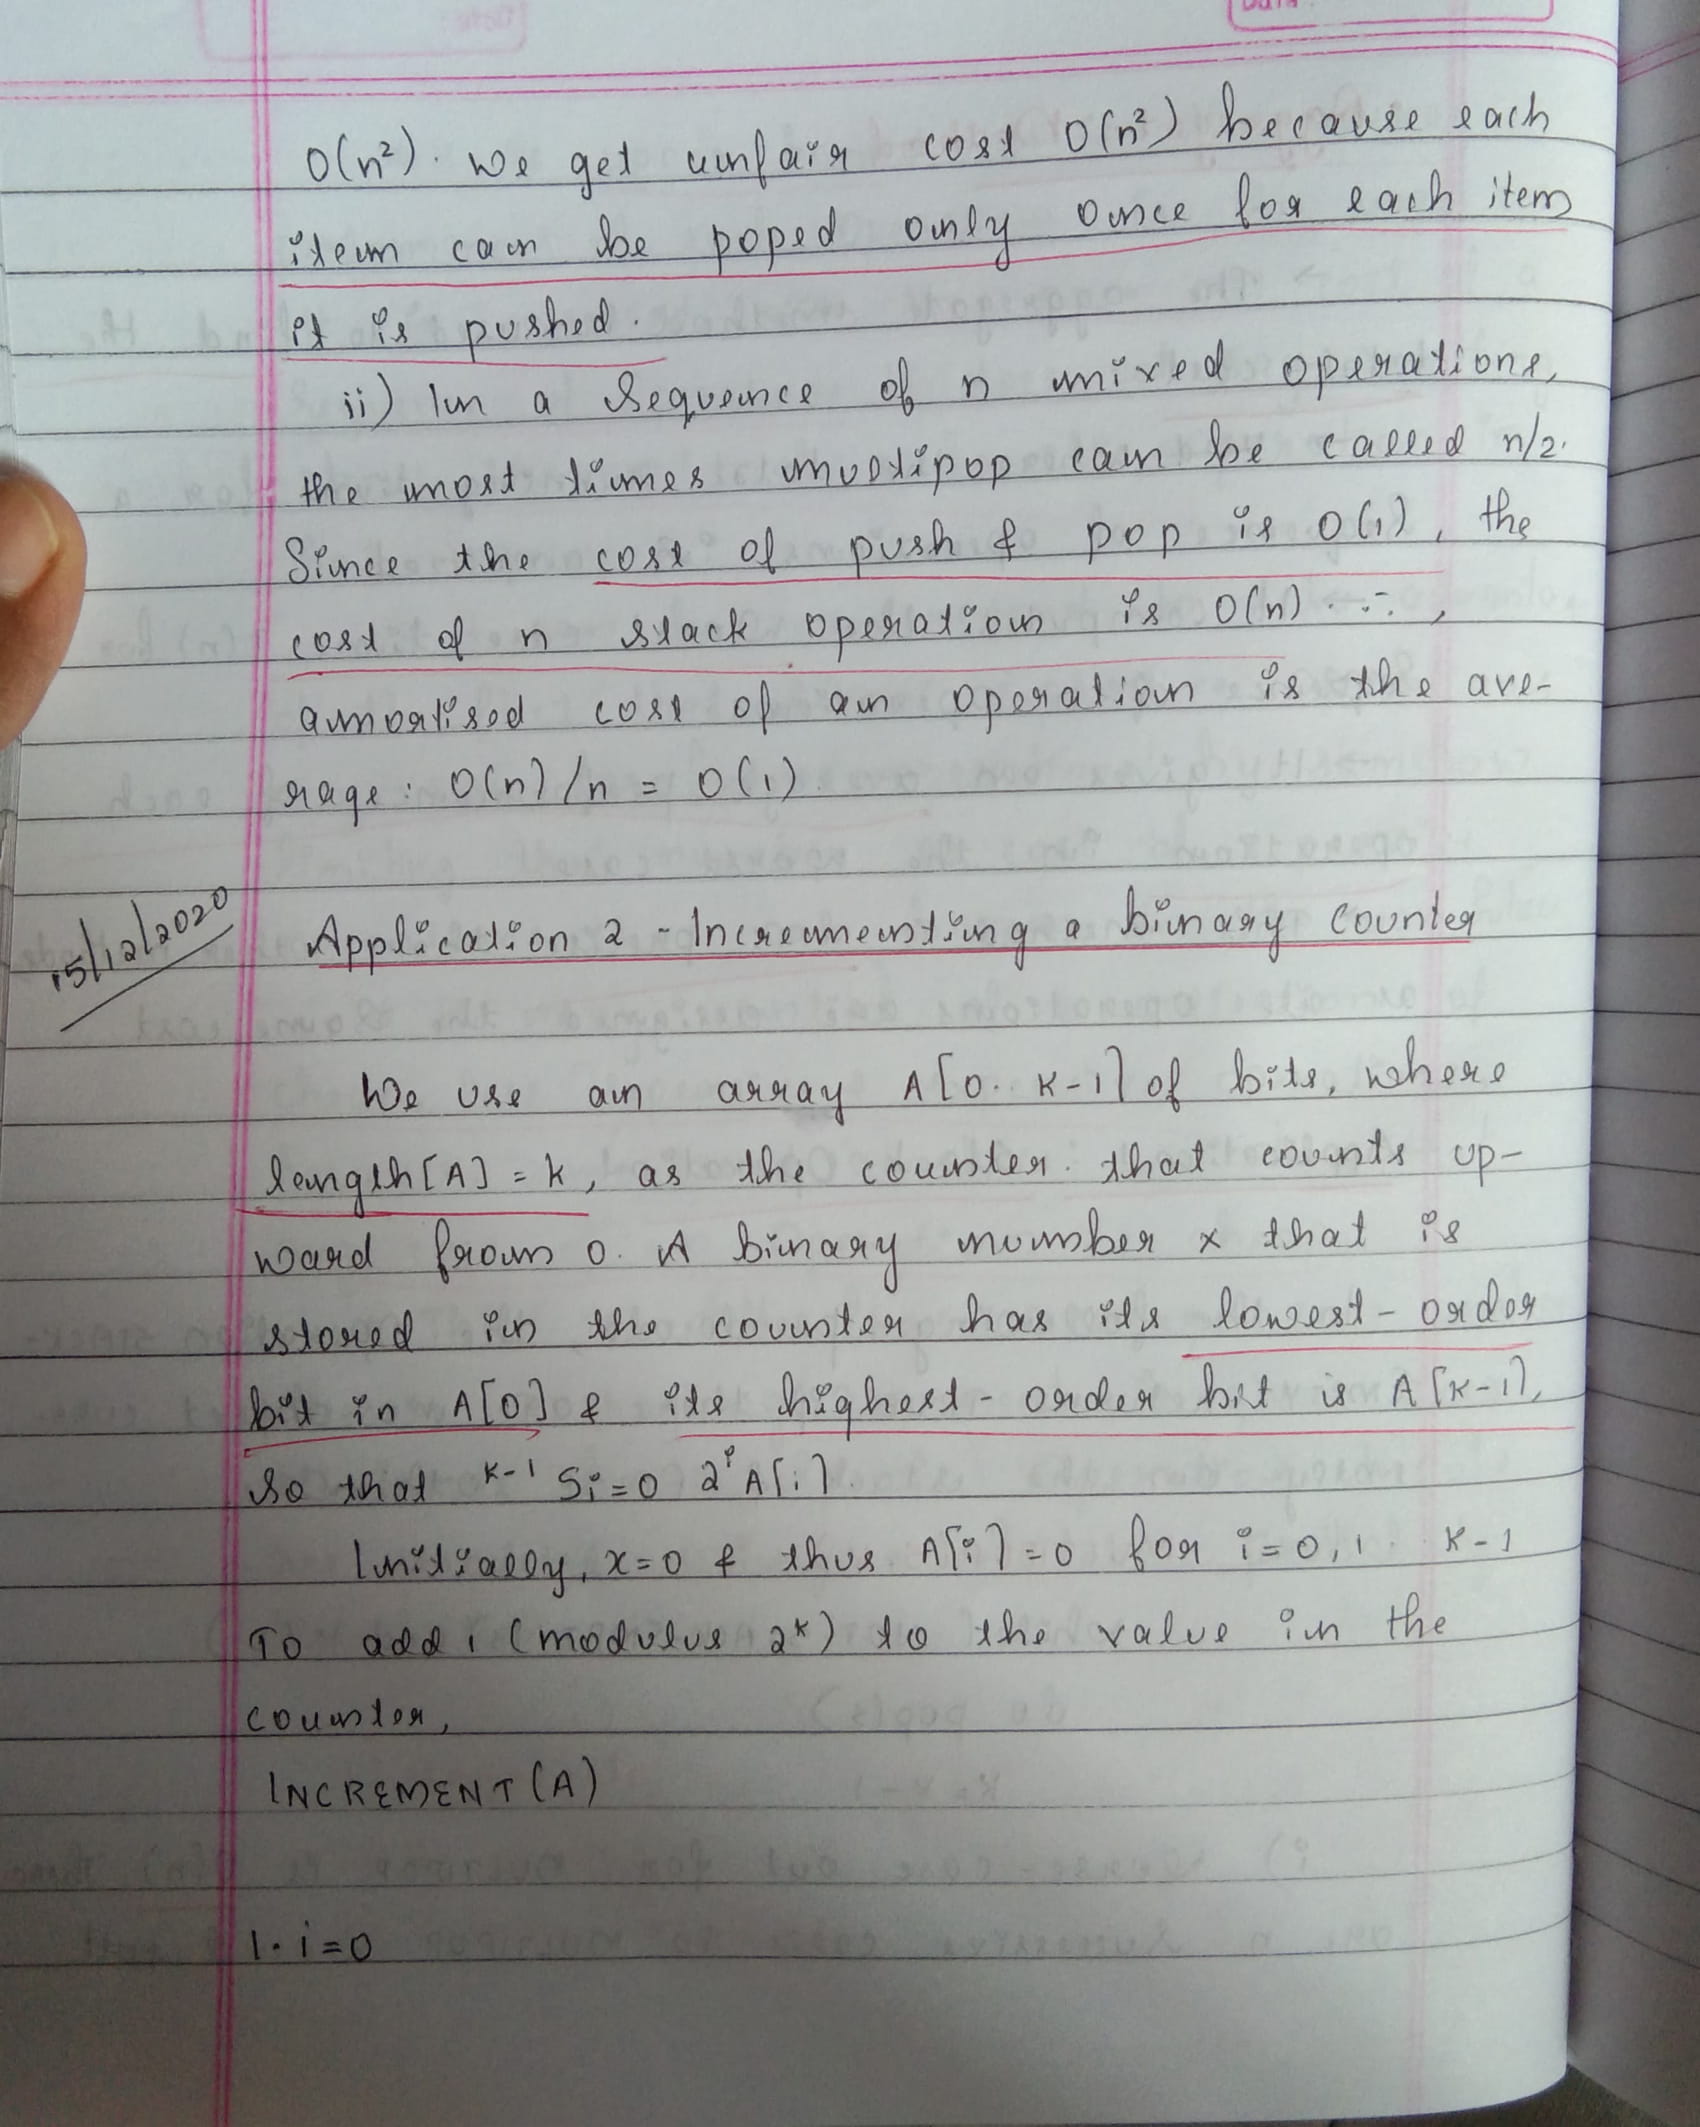 O(n²). We get unfair cost O(n²) because each
item can be poped only once for each item
it is pushed.
ii) In a sequence of n mixed operations,
the most times multipop can be called n/2.
Since the cost of push & pop is O(1), the
cost of n stack operation is O(n). ∴,
amortised cost of an operation is the ave-
rage: O(n)/n = O(1).
15/12/2020
Application 2 - Incrementing a binary counter
We use an array A[0.. K-1] of bits, where
length[A] = k, as the counter. that counts up-
ward from 0. A binary number x that is
stored in the counter has its lowest-order
bit in A[0] & its highest-order bit is A[K-1],
so that K-1 Si=0 2^i A[i].
Initially, x=0 & thus A[i]=0 for i=0,1.. K-1
To add 1 (modulus 2^k) to the value in the
counter,
INCREMENT(A)
1. i=0